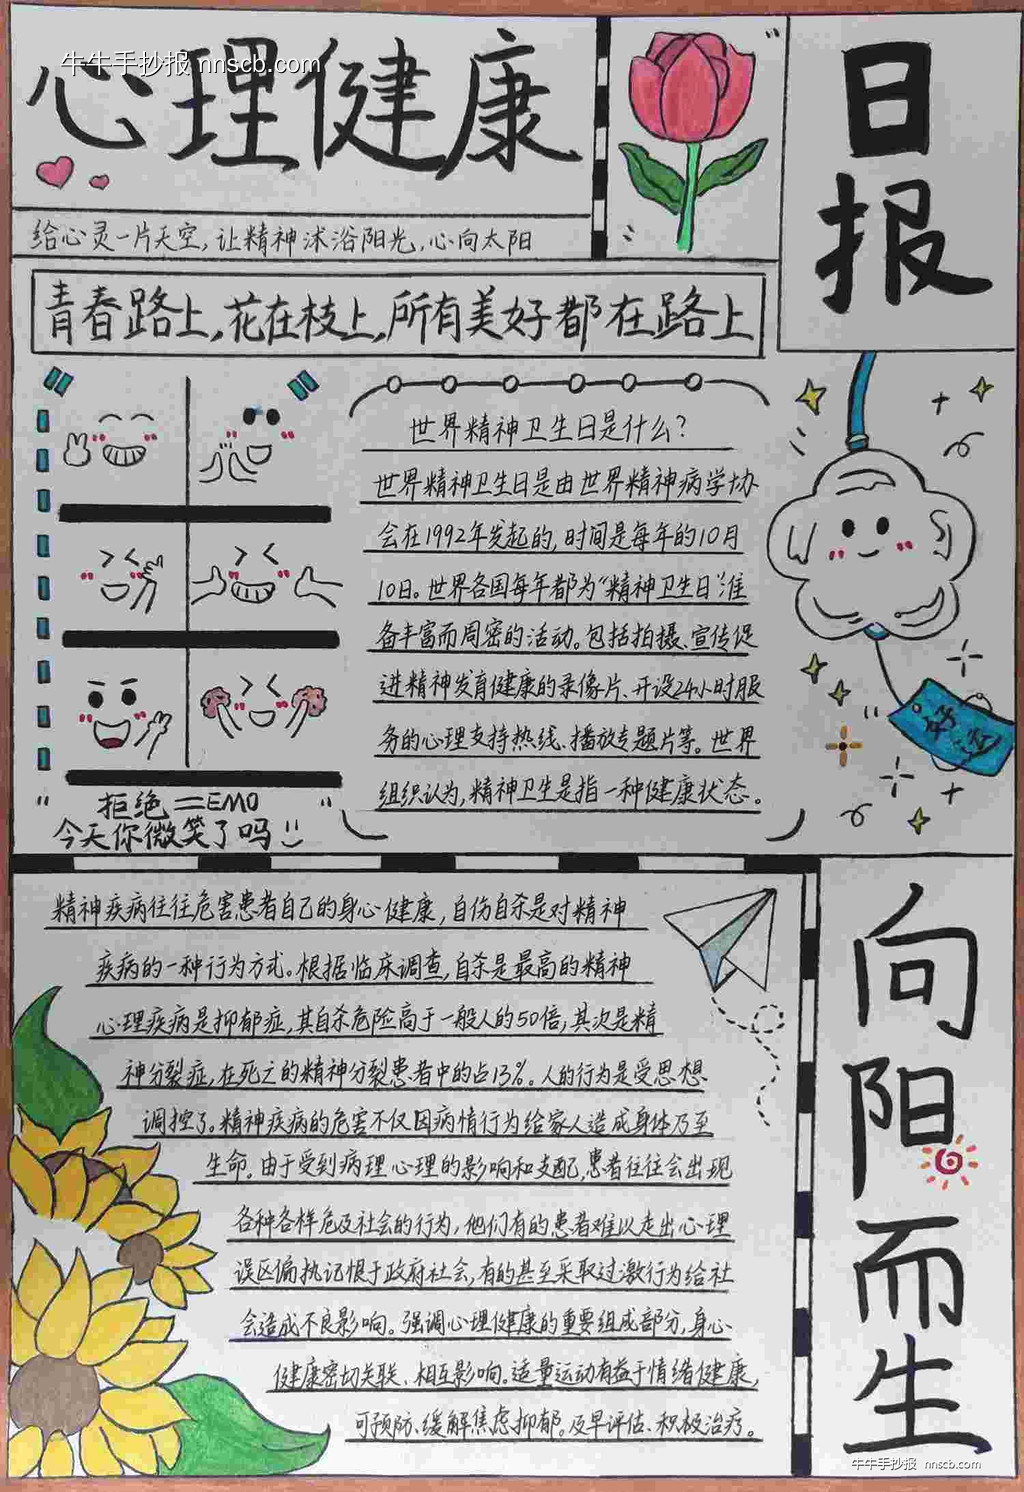 牛牛手抄报 nnscb.com
心理健康
日报
给心灵一片天空,让精神沐浴阳光,心向太阳
青春路上,花在枝上,所有美好都在路上
世界精神卫生日是什么?
世界精神卫生日是由世界精神病学协
会在1992年发起的,时间是每年的10月
10日。世界各国每年都为“精神卫生日”准
备丰富而周密的活动。包括拍摄、宣传促
进精神发育健康的录像片、开设24小时服
务的心理支持热线、播放专题片等。世界
组织认为,精神卫生是指一种健康状态。
拒绝二EMO
今天你微笑了吗
精神疾病往往危害患者自己的身心健康,自伤自杀是对精神
疾病的一种行为方式。根据临床调查,自杀是最高的精神
心理疾病是抑郁症,其自杀危险高于一般人的50倍,其次是精
神分裂症,在死亡的精神分裂患者中的占13%。人的行为是受思想
调控了。精神疾病的危害不仅因病情行为给家人造成身体乃至
生命。由于受到病理心理的影响和支配,患者往往会出现
各种各样危及社会的行为,他们有的患者难以走出心理
误区偏执记恨于政府社会,有的甚至采取过激行为给社
会造成不良影响。强调心理健康的重要组成部分,身心
健康密切关联、相互影响。适量运动有益于情绪健康,
可预防、缓解焦虑抑郁。及早评估、积极治疗。
向阳而生
牛牛手抄报 nnscb.com